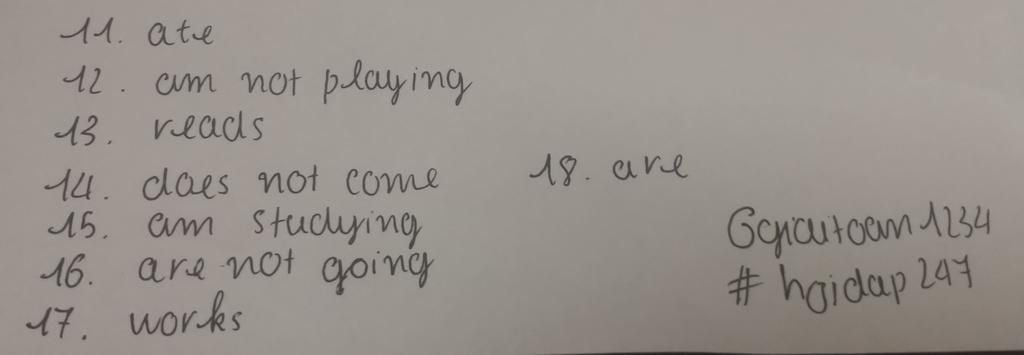 11. ate
12. am not playing
13. reads
14. does not come
15. am studying
16. are not going
17. works
18. are
Ggiaitoan1234
# hoidap247